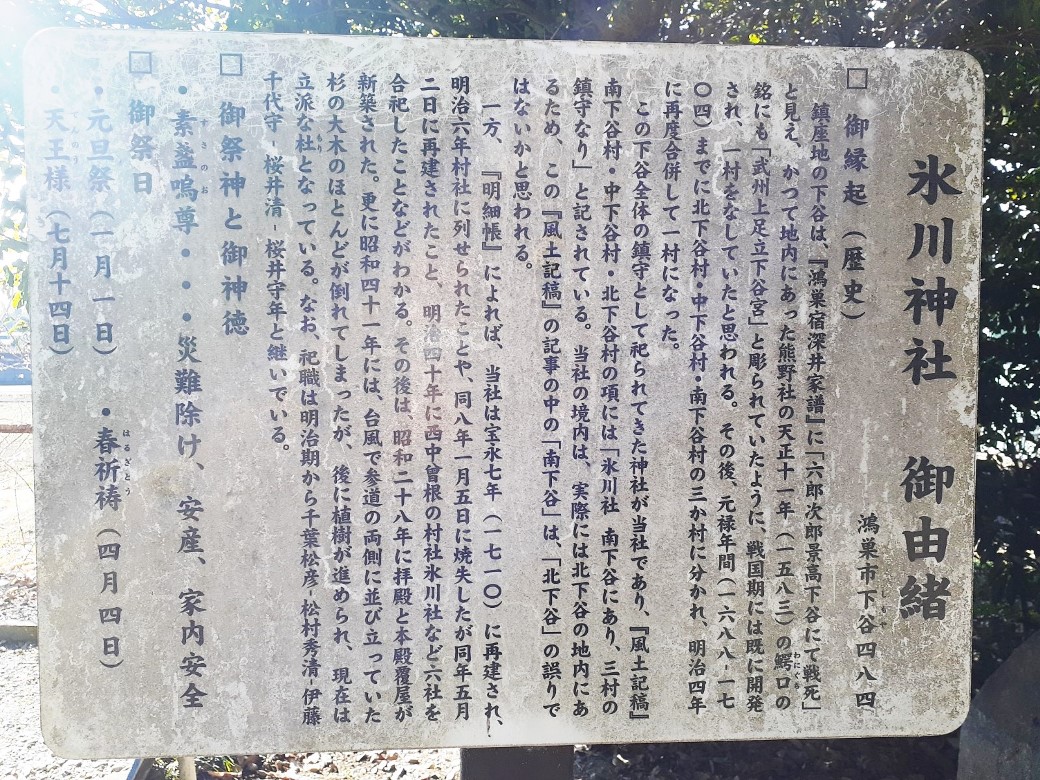 氷川神社　御由緒
鴻巣市下谷四八四
しもや
□ 御縁起（歴史）
鎮座地の下谷は、『鴻巣宿深井家譜』に「六郎次郎景高下谷にて戦死」
と見え、かつて地内にあった熊野社の天正十一年（一五八三）の鰐口の
わにぐち
銘にも「武州上足立下谷宮」と彫られていたように、戦国期には既に開発
され、一村をなしていたと思われる。その後、元禄年間（一六八八-一七
〇四）までに北下谷村・中下谷村・南下谷村の三か村に分かれ、明治四年
に再度合併して一村になった。
この下谷全体の鎮守として祀られてきた神社が当社であり、『風土記稿』
南下谷村・中下谷村・北下谷村の項には「氷川社　南下谷にあり、三村の
鎮守なり」と記されている。当社の境内は、実際には北下谷の地内にあ
るため、この『風土記稿』の記事の中の「南下谷」は、「北下谷」の誤りで
はないかと思われる。
一方、『明細帳』によれば、当社は宝永七年（一七一〇）に再建され、
明治六年村社に列せられたことや、同八年一月五日に焼失したが同年五月
二日に再建されたこと、明治四十年に西中曽根の村社氷川社など六社を
合祀したことなどがわかる。その後は、昭和二十八年に拝殿と本殿覆屋が
新築された。更に昭和四十一年には、台風で参道の両側に並び立っていた
杉の大木のほとんどが倒れてしまったが、後に植樹が進められ、現在は
立派な杜となっている。なお、祀職は明治期から千葉松彦-松村秀清-伊藤
もり
千代守-桜井清-桜井守年と継いでいる。
□ 御祭神と御神徳
・素盞嗚尊・・・災難除け、安産、家内安全
すさのお
□ 御祭日
・元旦祭（一月一日）　・春祈祷（四月四日）
はるぎとう
・天王様（七月十四日）